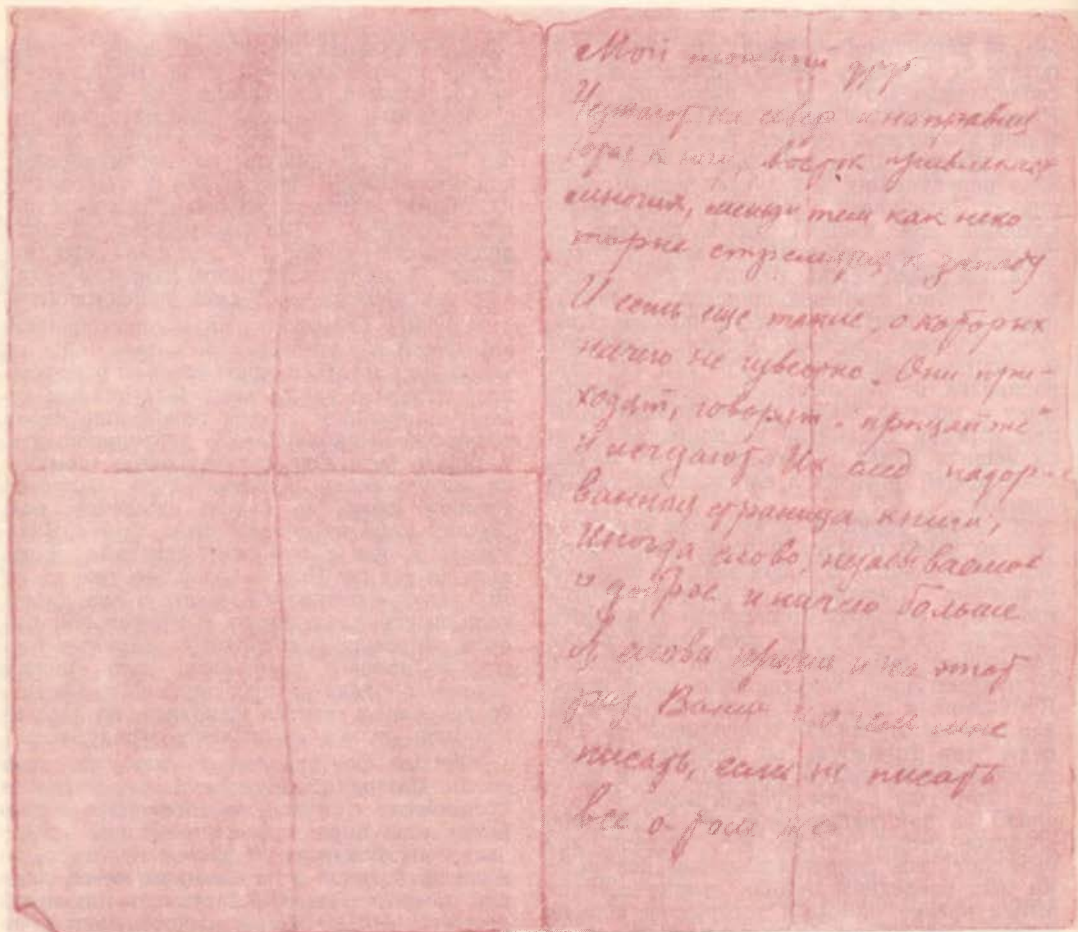 Мой друг
на север и направив
к ним, восток
многих, между тем как неко
торые к западу
И есть еще такие, о которых
ничего не известно. Они при-
ходят, говорят „прощайте“
И исчезают Их след надор-
ванная страница книги,
Иногда слово, незабываемое
и доброе и ничего больше
А слова и на этот
раз Ваши о чем мне
писать, если не писать
все о том же